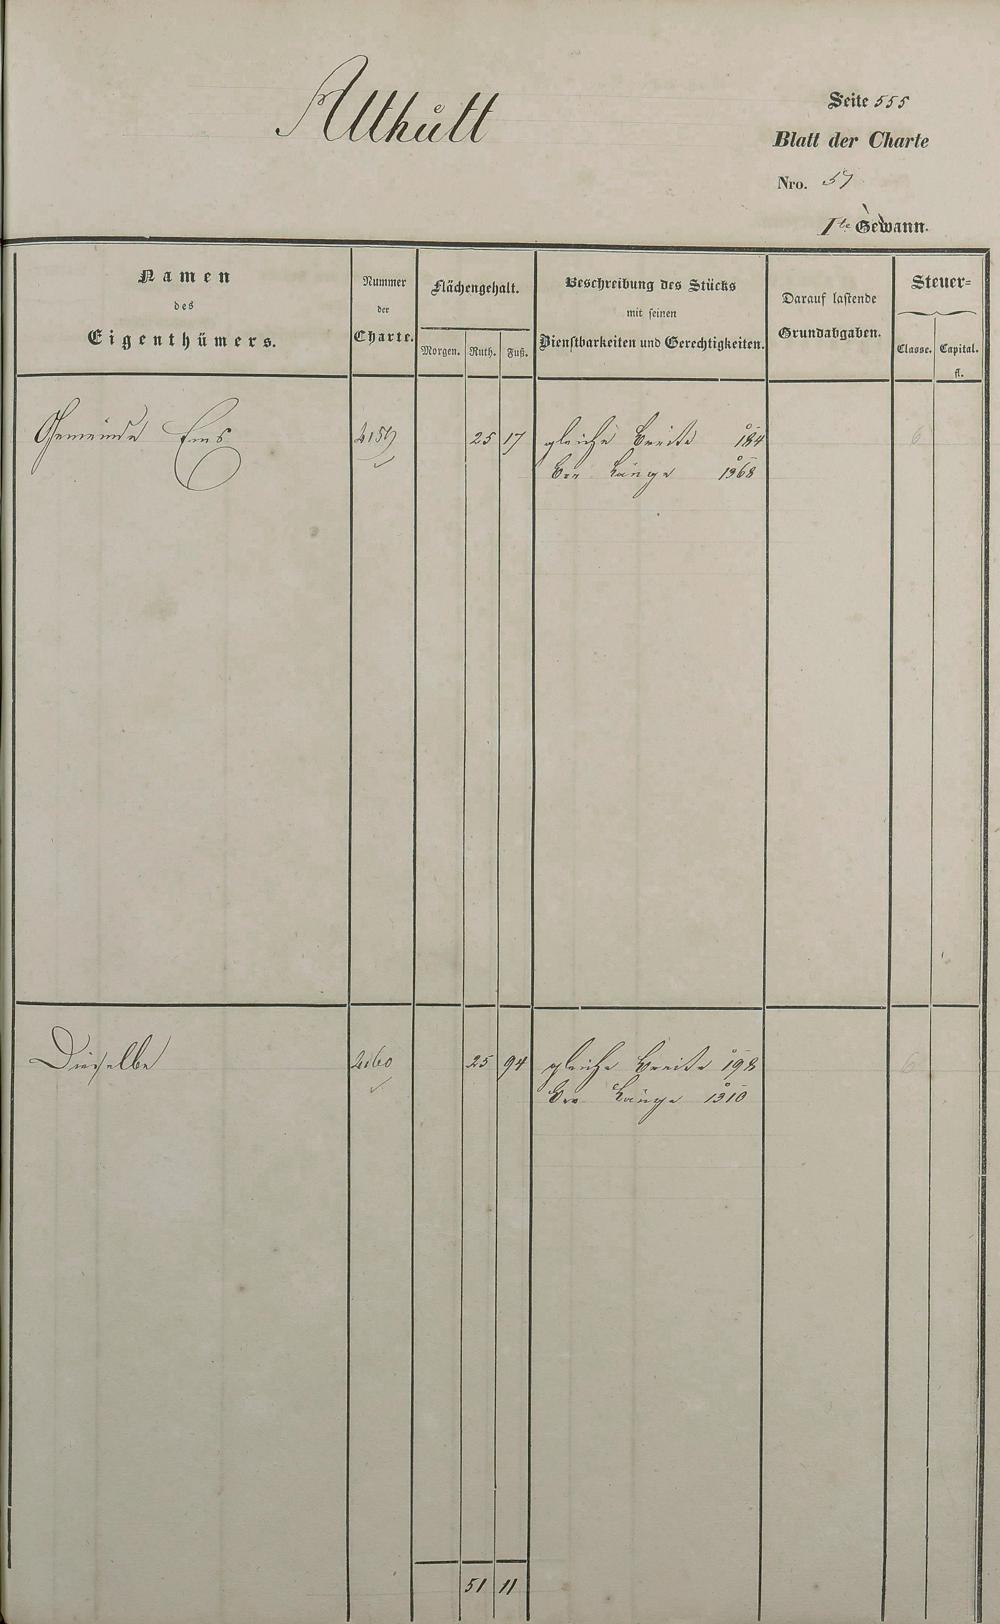 Althütt
Seite 555
Blatt der Charte
Nro. 57
1te Gewann.
Namen
des
Eigenthümers.
Nummer
der
Charte.
Flächengehalt.
Morgen. Ruth. Fuß.
Beschreibung des Stücks
mit seinen
Dienstbarkeiten und Gerechtigkeiten.
Darauf lastende
Grundabgaben.
Steuer=
Classe. Capital.
fl.
Gemeinde Ems 2159 25 17 gleiche Breite 184 6
Länge 1368
Dieselbe 2160 25 94 gleiche Breite 198 6
Länge 1310
51 11